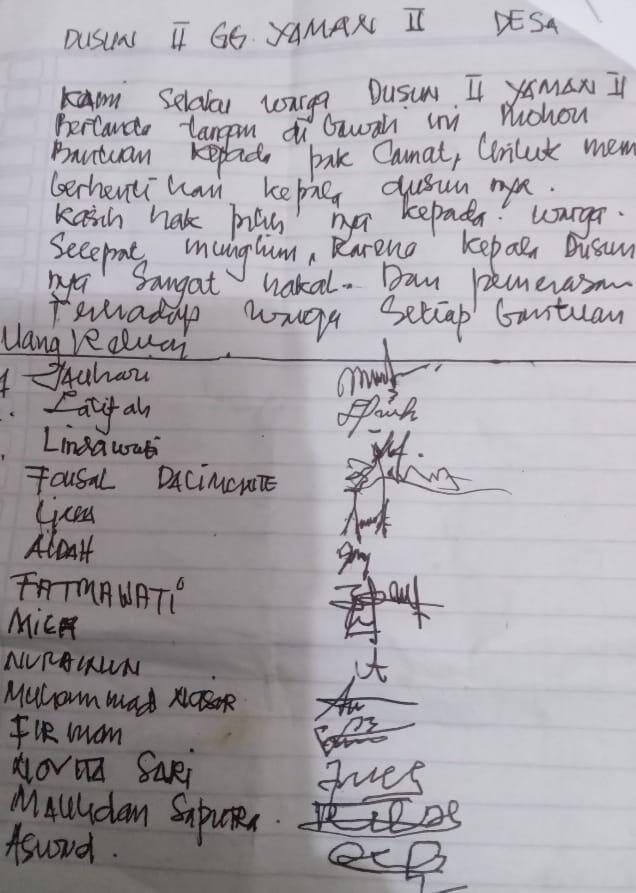 DUSUN II GG. YAMAN II DESA
Kami Selaku warga DUSUN II YAMAN II
Bertanda tangan di bawah ini Mohon
Bantuan kepada pak Camat, Untuk mem
berhentikan kepala dusun nya.
kasih hak pilih nya kepada warga.
Secepat mungkin, Karena kepala Dusun
nya Sangat nakal. Dan pemerasan
Terhadap warga Setiap bantuan
Uang Keluar.
Jauhari
Latifah
Lindawati
FAUSAL
AIDAH
FATMAWATI
MICA
NURAINUN
Muhammad NASIR
FIRman
NOVITA SARI
MAULidan SAPUTRA.